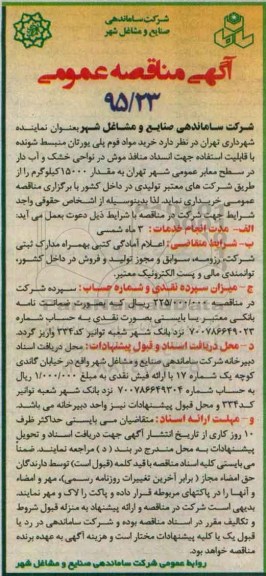 شرکت ساماندهی
صنایع و مشاغل شهر
آگهی مناقصه عمومی
۹۵/۲۳
شرکت ساماندهی صنایع و مشاغل شهر بعنوان نماینده
شهرداری تهران در نظر دارد خرید مواد فوم پلی یورتان منبسط شونده
با قابلیت استفاده جهت انسداد منافذ موش در نواحی خشک و آب دار
در سطح معابر عمومی شهر تهران به مقدار ۱۵۰۰۰کیلوگرم را از
طریق شرکت های معتبر تولیدی در داخل کشور با برگزاری مناقصه
عمومی خریداری نماید لذا بدینوسیله از اشخاص حقوقی واجد
شرایط جهت شرکت در مناقصه با شرایط ذیل دعوت بعمل می آید:
الف- مدت انجام خدمات : ۳ ماه شمسی
ب- شرایط متقاضی: اعلام آمادگی کتبی بهمراه مدارک ثبتی
شرکت، رزومه، سوابق و مجوز تولید و فروش در داخل کشور،
توانمندی مالی و پست الکترونیک معتبر.
ج- میزان سپرده نقدی و شماره حساب: سپرده شرکت
در مناقصه ۲۲۵/۰۰۰/۰۰۰ ریال که بصورت ضمانت نامه
بانکی معتبر یا بایستی بصورت نقدی به حساب شماره
۷۰۰۷۸۶۶۴۹۰۲۳ نزد بانک شهر شعبه توانیر کد۳۳۴ واریز گردد.
د- محل دریافت اسناد و قبول پیشنهادات: محل دریافت اسناد
دبیرخانه شرکت ساماندهی صنایع و مشاغل شهر واقع در خیابان گاندی
کوچه یک شماره ۱۷ با ارائه فیش نقدی به مبلغ ۱/۰۰۰/۰۰۰ ریال
به حساب شماره ۷۰۰۷۸۶۶۴۹۳۰۴ نزد بانک شهر شعبه توانیر
کد۳۳۴ و محل قبول پیشنهادات نیز واحد دبیرخانه می باشد.
و- مهلت ارائه اسناد: متقاضیان می بایستی حداکثر ظرف
۱۰ روز کاری از تاریخ انتشار آگهی جهت دریافت اسناد و تحویل
پیشنهادات به محل مندرج در بند ( د ) مراجعه نمایند. ضمناً
می بایستی کلیه اسناد مناقصه با قید کلمه (قبول است) توسط دارندگان
حق امضاء مجاز ( برابر آخرین تغییرات روزنامه رسمی)، مهر و امضاء
و آنها را در پاکتهای مربوطه قرار داده و پاکت را لاک و مهر نمایند.
بدیهی است شرکت در مناقصه و ارائه پیشنهاد به منزله قبول شروط
و تکالیف مقرر در اسناد مناقصه بوده و شرکت ساماندهی در رد یا
قبول یک یا کلیه پیشنهادات مختار است و هزینه آگهی به عهده برنده
مناقصه خواهد بود.
روابط عمومی شرکت ساماندهی صنایع و مشاغل شهر